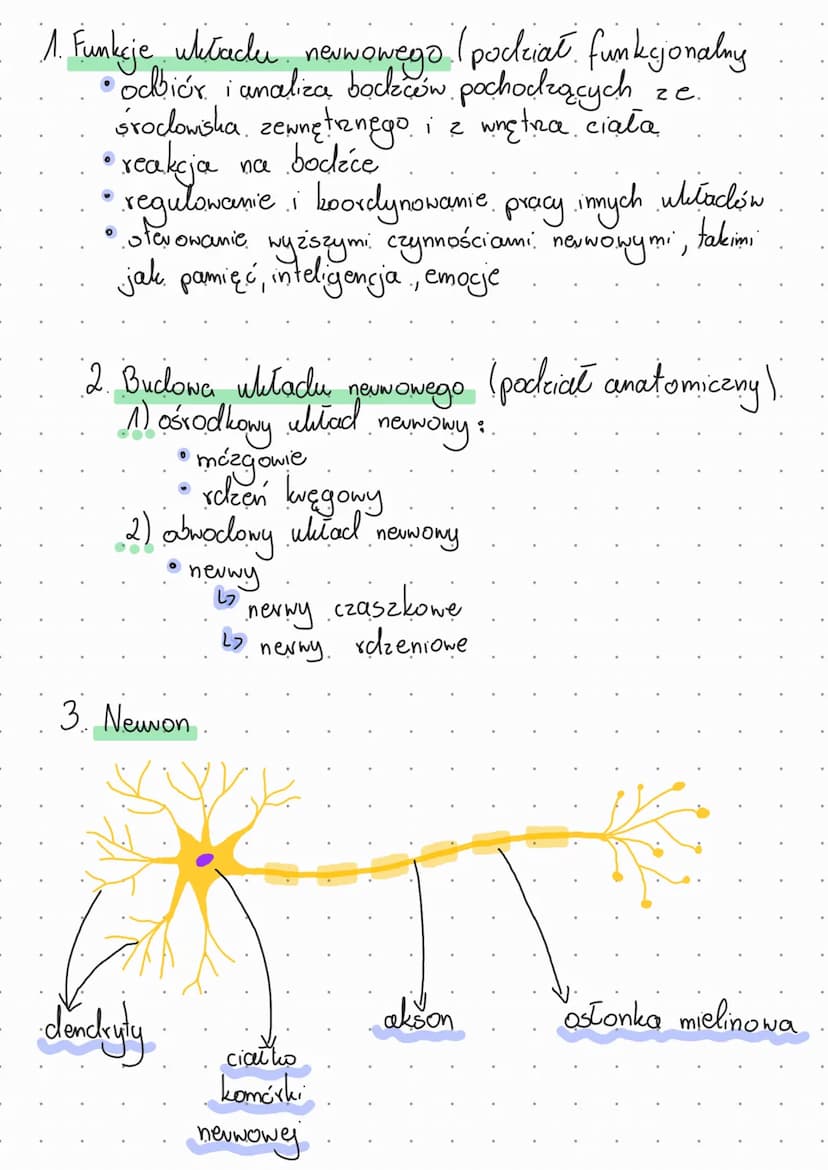 1. Funkcje układu nerwowego (podział funkcjonalny
• odbiór i analiza bodźców pochodzących ze
środowiska zewnętrznego i z wnętrza ciała
• reakcja na bodźce
• regulowanie i koordynowanie pracy innych układów
• sterowanie wyższymi czynnościami nerwowymi, takimi
jak pamięć, inteligencja, emocje
2. Budowa układu nerwowego (podział anatomiczny)
1) ośrodkowy układ nerwowy:
• mózgowie
• rdzeń kręgowy
2) obwodowy układ nerwowy
• nerwy
↳ nerwy czaszkowe
↳ nerwy rdzeniowe
3. Neuron
dendryty
akson
osłonka mielinowa
ciałko
komórki
nerwowej